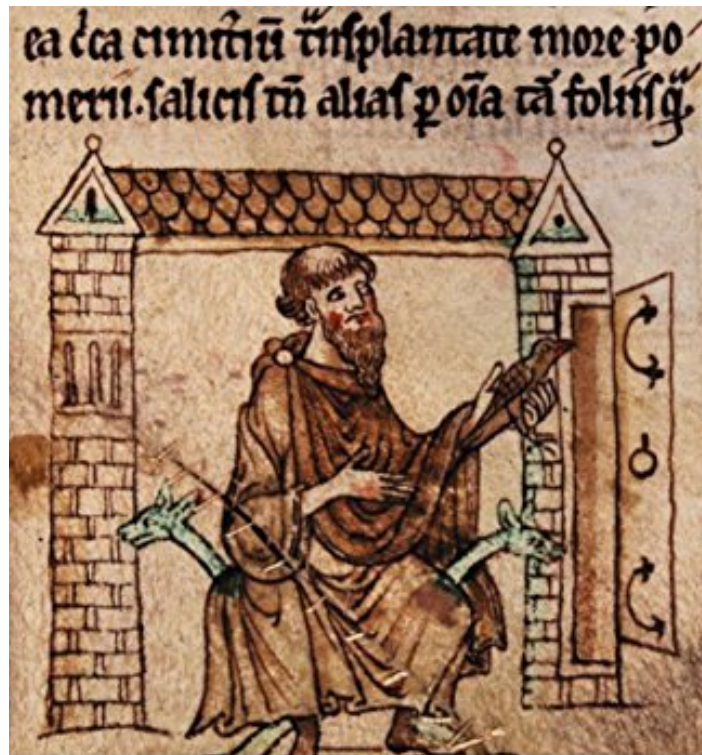 ea c̄ca cimit̄iū tͣnsplantate more po
merii. salicis tn̄ alias ꝑ oīa tā foliis qͣ